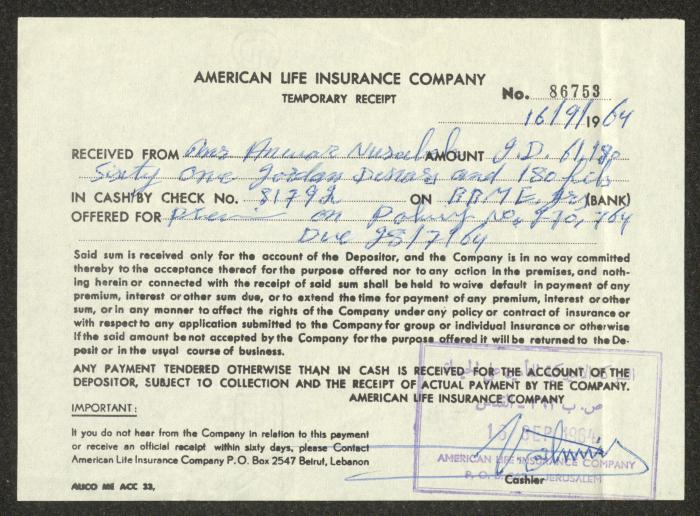 AMERICAN LIFE INSURANCE COMPANY
TEMPORARY RECEIPT
No. 86753
16/9/1964
RECEIVED FROM Mrs Anwar Nuseibeh AMOUNT J.D. 61,180
Sixty One Jordan Dinars and 180 fils
IN CASH/BY CHECK No. 81792 ON BBME. (BANK)
OFFERED FOR on Policy No. 970,764
Due 28/7/64
Said sum is received only for the account of the Depositor, and the Company is in no way committed
thereby to the acceptance thereof for the purpose offered nor to any action in the premises, and noth-
ing herein or connected with the receipt of said sum shall be held to waive default in payment of any
premium, interest or other sum due, or to extend the time for payment of any premium, interest or other
sum, or in any manner to affect the rights of the Company under any policy or contract of insurance or
with respect to any application submitted to the Company for group or individual Insurance or otherwise
If the said amount be not accepted by the Company for the purpose offered it will be returned to the De-
posit or in the usual course of business.
ANY PAYMENT TENDERED OTHERWISE THAN IN CASH IS RECEIVED FOR THE ACCOUNT OF THE
DEPOSITOR, SUBJECT TO COLLECTION AND THE RECEIPT OF ACTUAL PAYMENT BY THE COMPANY.
AMERICAN LIFE INSURANCE COMPANY
IMPORTANT:
If you do not hear from the Company in relation to this payment
or receive an official receipt within sixty days, please Contact
American Life Insurance Company P.O. Box 2547 Beirut, Lebanon
ص. ب - القدس
SEP 1964
AMERICAN LIFE INSURANCE COMPANY
P. O. JERUSALEM
Cashier
ALICO ME ACC 33.